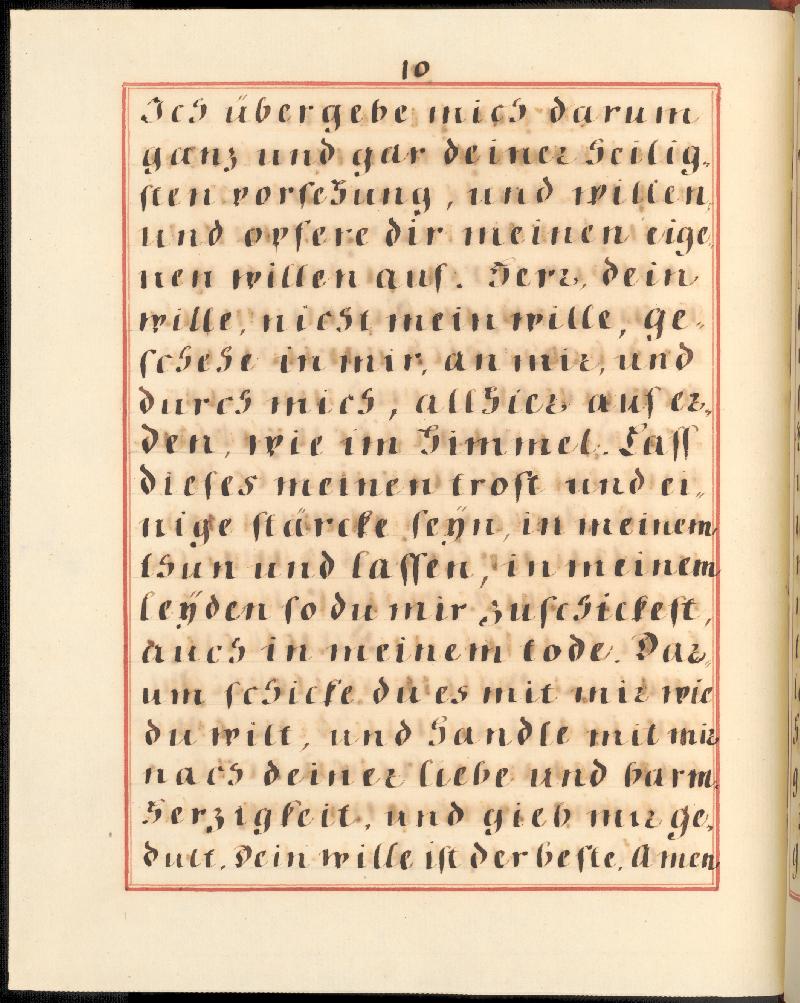 10
Ich übergebe mich darum
ganz und gar deiner heilig-
sten vorsehung, und willen,
und opfere dir meinen eige-
nen willen auf. Herr, dein
wille, nicht mein wille, ge-
schehe in mir, an mir, und
durch mich, allhier auf er-
den, wie im Himmel. Lass
dieses meinen trost und ei-
nige stärcke seÿn, in meinem
thun und lassen, in meinem
leÿden so du mir zuschickest,
auch in meinem tode. Dar-
um schicke du es mit mir wie
du wilt, und handle mit mir
nach deiner liebe und barm-
herzigkeit, und gieb mir ge-
dult. Dein wille ist der beste. Amen